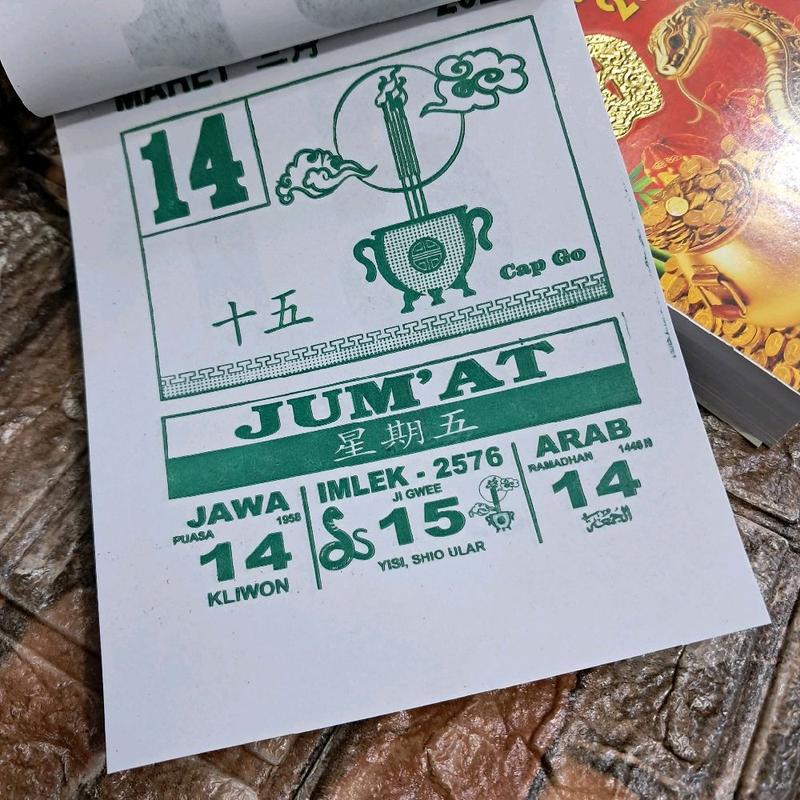 MARET 三月
14
Cap Go
十五
JUM'AT
星期五
JAWA
PUASA 1958
14
KLIWON
IMLEK - 2576
JI GWEE
15
YISI, SHIO ULAR
ARAB
RAMADHAN 1446 H
14